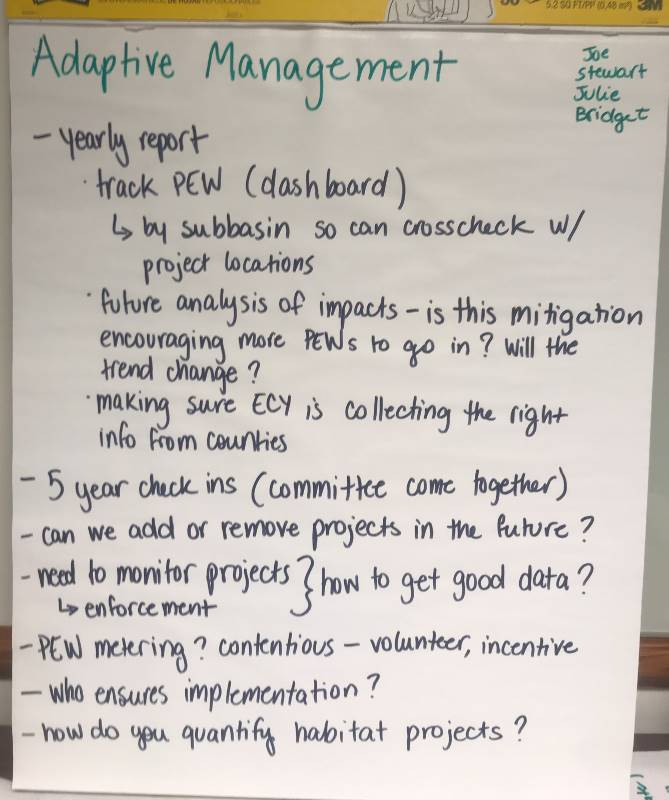 5.2 SQ FT/PP (0,48 m²) 3M
Adaptive Management
Joe
Stewart
Julie
Bridget
- yearly report
· track PEW (dashboard)
↳ by subbasin so can crosscheck w/
project locations
· future analysis of impacts - is this mitigation
encouraging more PEWs to go in? Will the
trend change?
· making sure ECY is collecting the right
info from counties
- 5 year check ins (committee come together)
- can we add or remove projects in the future?
- need to monitor projects } how to get good data?
↳ enforcement
- PEW metering? contentious - volunteer, incentive
- who ensures implementation?
- how do you quantify habitat projects?